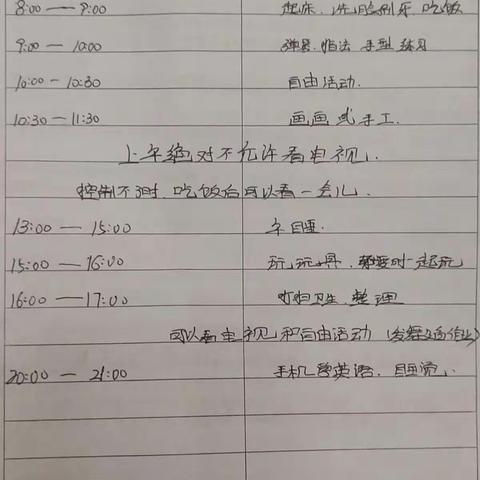 8:00 — 9:00 起床、洗脸刷牙、吃饭
9:00 — 10:00 弹琴、指法 手型 练习
10:00 - 10:30 自由活动.
10:30 - 11:30 画画 或 手工.
上午绝对不允许看电视.
控制不了时、吃饭后可以看一会儿.
13:00 — 15:00 午睡.
15:00 — 16:00 玩玩具、一起玩
16:00 — 17:00 打扫卫生、整理
可以看电视和自由活动
20:00 — 21:00 手机学英语、睡觉.